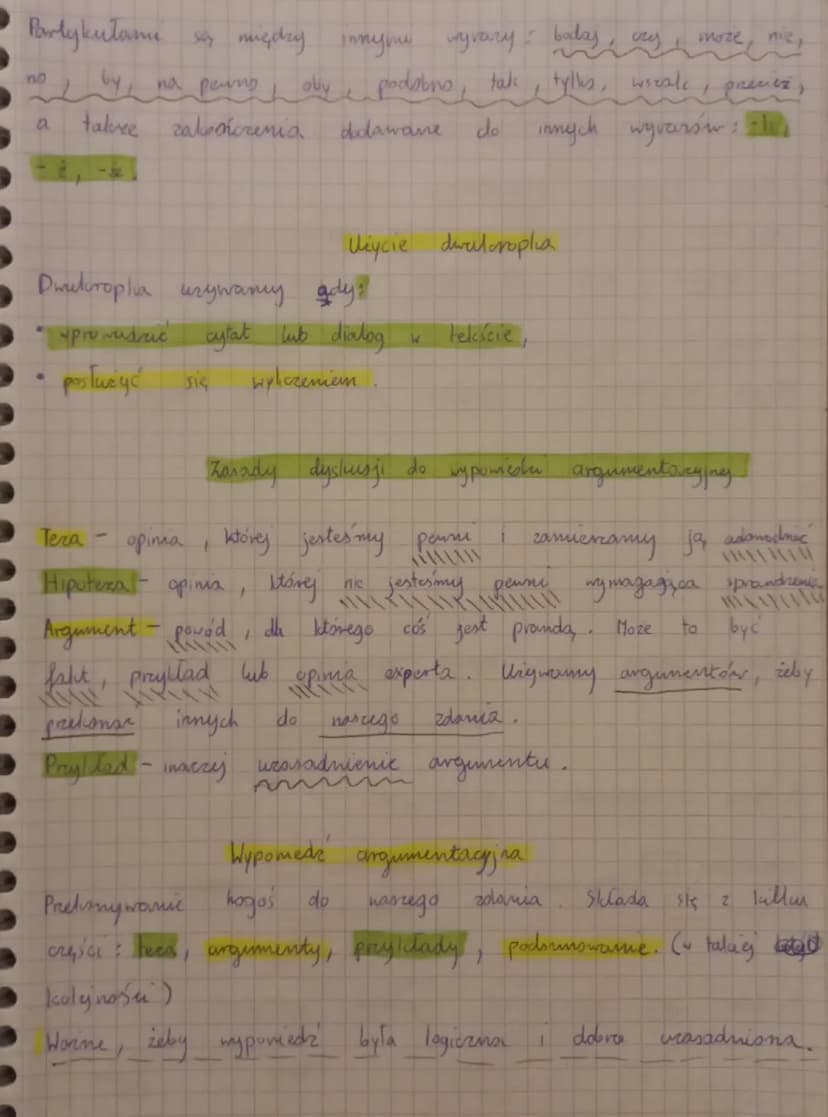 Partykułami są między innymi wyrazy: bodaj, czy, może, nie,
no, by, na pewno, oby, podobno, tak, tylko, wszak, przecież,
a także zakończenia dodawane do innych wyrazów: -li,
-ż, -że.
Użycie dwukropka
Dwukropka używamy gdy:
• wprowadzić cytat lub dialog w tekście,
• posłużyć się wyliczeniem.
Zasady dyskusji do wypowiedzi argumentacyjnej
Teza - opinia, której jesteśmy pewni i zamierzamy ją udowodnić
Hipoteza - opinia, której nie jesteśmy pewni wymagająca sprawdzenia
Argument - powód, dla którego coś jest prawdą. Może to być
fakt, przykład lub opinia experta. Używamy argumentów, żeby
przekonać innych do naszego zdania.
Przykład - inaczej uzasadnienie argumentu.
Wypowiedź argumentacyjna
Przekonywanie kogoś do naszego zdania. Składa się z kilku
części: teza, argumenty, przykłady, podsumowanie. (w takiej
kolejności)
Ważne, żeby wypowiedź była logiczna i dobra uzasadniona.